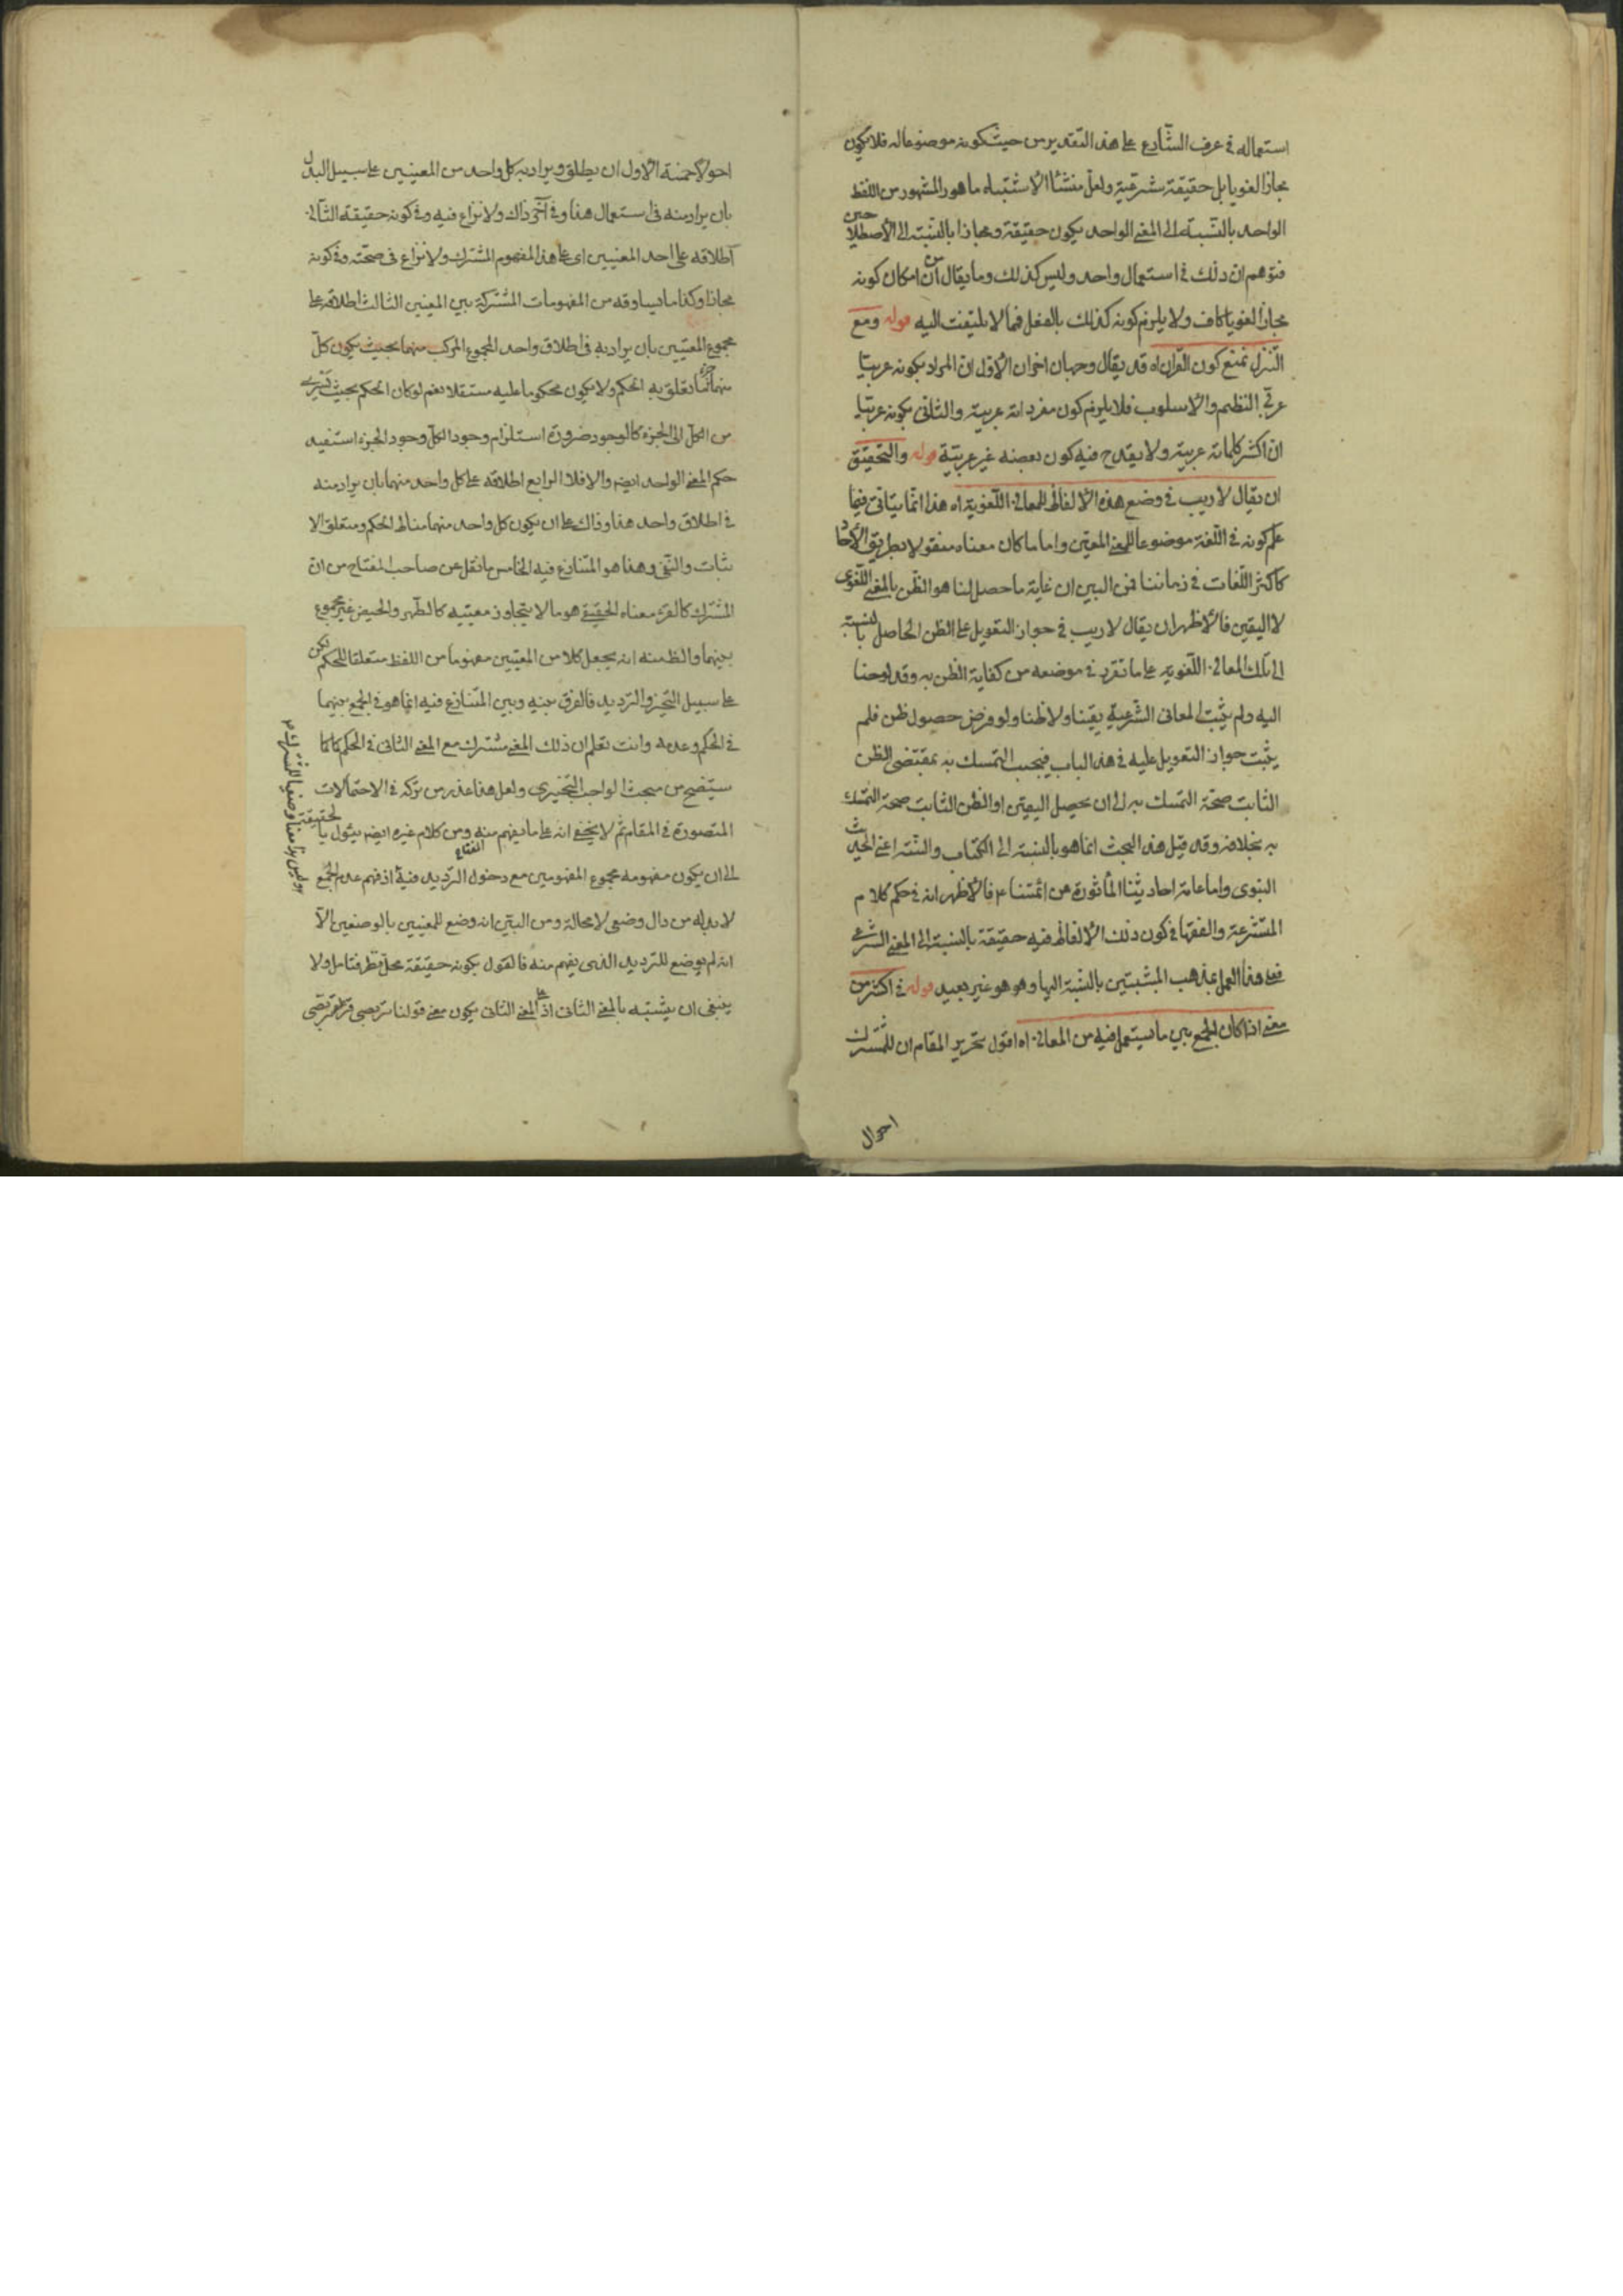 استعماله في عرف الشارع على هذا التقدير من حيث كونه موضوعا له فلا يكون
مجازا لغويا بل حقيقة شرعية ولعل منشأ الاشتباه ما هو المشهور من اللفظ
الواحد بالنسبة الى المعنى الواحد يكون حقيقة ومجازا بالنسبة الى الاصطلاحين
فتوهم ان ذلك في استعمال واحد وليس كذلك وما يقال من ان امكان كونه
مجازا لغويا كاف ولا يلزم كونه كذلك بالفعل فما لا يلتفت اليه قوله ومع
التنزل نمنع كون القرآن اه قد يقال وجهان اخران الاول ان المراد بكونه عربيا
عربي النظم والاسلوب فلا يلزم كون مفرداته عربية والثاني بكونه عربيا
ان اكثر كلماته عربية ولا يقدح فيه كون بعضه غير عربية قوله والتحقيق
ان يقال لا ريب في وضع هذه الالفاظ للمعاني اللغوية اه هذا انما يتأتى فيما
علم كونه في اللغة موضوعا للمعنى المعين واما ما كان معناه منقولا بطريق الآحاد
كاكثر اللغات في زماننا فمن البين ان غاية ما حصل لنا هو الظن بالمعنى اللغوي
لا اليقين فالاظهر ان يقال لا ريب في جواز التعويل على الظن الحاصل بالنسبة
الى تلك المعاني اللغوية على ما تقرر في موضعه من كفاية الظن به وقد لوحنا
اليه ولم يثبت المعاني الشرعية يقينا ولا ظنا ولو فرض حصول ظن فلم
يثبت جواز التعويل عليه في هذا الباب فيجب التمسك به بمقتضى الظن
الثابت صحة التمسك به الى ان يحصل اليقين او الظن الثابت صحة التمسك
به بخلافه وقد قيل هذا البحث انما هو بالنسبة الى الكتاب والسنة اعني الحديث
النبوي واما عامة احاديثنا المأثورة من ائمتنا ع فالاظهر انه في حكم كلام
المتشرعة والفقها في كون ذلك الالفاظ فيه حقيقة بالنسبة الى المعنى الشرعي
فعلى هذا العمل بمذهب المثبتين بالنسبة اليها وهو هو غير بعيد قوله في اكثر من
معنى اذا كان الجمع بين ما يستعمل فيه من المعاني اه اقول تحرير المقام ان للمشترك
احوال
احوالا خمسة الاول ان يطلق ويراد به كل واحد من المعنيين على سبيل البدل
بان يراد منه في استعمال هذا وفي آخر ذاك ولا نزاع فيه وفي كونه حقيقة الثاني
اطلاقه على احد المعنيين اى على هذا المفهوم المشترك ولا نزاع في صحته وفي كونه
مجازا وكذا ما يساوقه من المفهومات المشتركة بين المعنيين الثالث اطلاقه على
مجموع المعنيين بان يراد به في اطلاق واحد المجموع المركب منهما بحيث يكون كل
منهما جزء لما يتعلق به الحكم ولا يكون محكوما عليه مستقلا نعم لو كان الحكم بحيث يسرى
من الكل الى الجزء كالوجود ضرورة استلزام وجود الكل وجود الجزء استفيد
حكم المعنى الواحد ايضا والا فلا الرابع اطلاقه على كل واحد منهما بان يراد منه
في اطلاق واحد هذا وذاك على ان يكون كل واحد منهما مناط الحكم ومتعلق الا
ثبات والنفي وهذا هو المتنازع فيه الخامس ما نقل عن صاحب المفتاح من ان
المشترك كالقرء معناه الحقيقي هو ما لا يتجاوز معنييه كالطهر والحيض غير مجموع
بينهما والظ منه انه يجعل كلا من المعنيين مفهوما من اللفظ متعلقا للحكم لكن
على سبيل التخيير والترديد فالفرق بينه وبين المتنازع فيه انما هو في الجمع بينهما
في الحكم وعدمه وانت تعلم ان ذلك المعنى مشترك مع المعنى الثاني في الحكم كما
سيتضح من مبحث الواجب التخييري ولعل هذا عذر من تركه في الاحتمالات
المتصورة في المقام ثم لا يخفى انه على ما يفهم منه ومن كلام غيره ايضا يئول بالحقيقة
الى ان يكون مفهومه مجموع المفهومين مع دخول الترديد فيه اذ فهم عدم الجمع
لا بد له من دال وضعي لا محالة ومن البين انه وضع للمعنيين بالوضعين الا
انه لم يوضع للترديد الذي يفهم منه فالقول بكونه حقيقة محل نظر فتامل ولا
ينبغي ان يشتبه بالمعنى الثاني اذ على المعنى الثاني يكون معنى قولنا تربصي قرءا تربصي